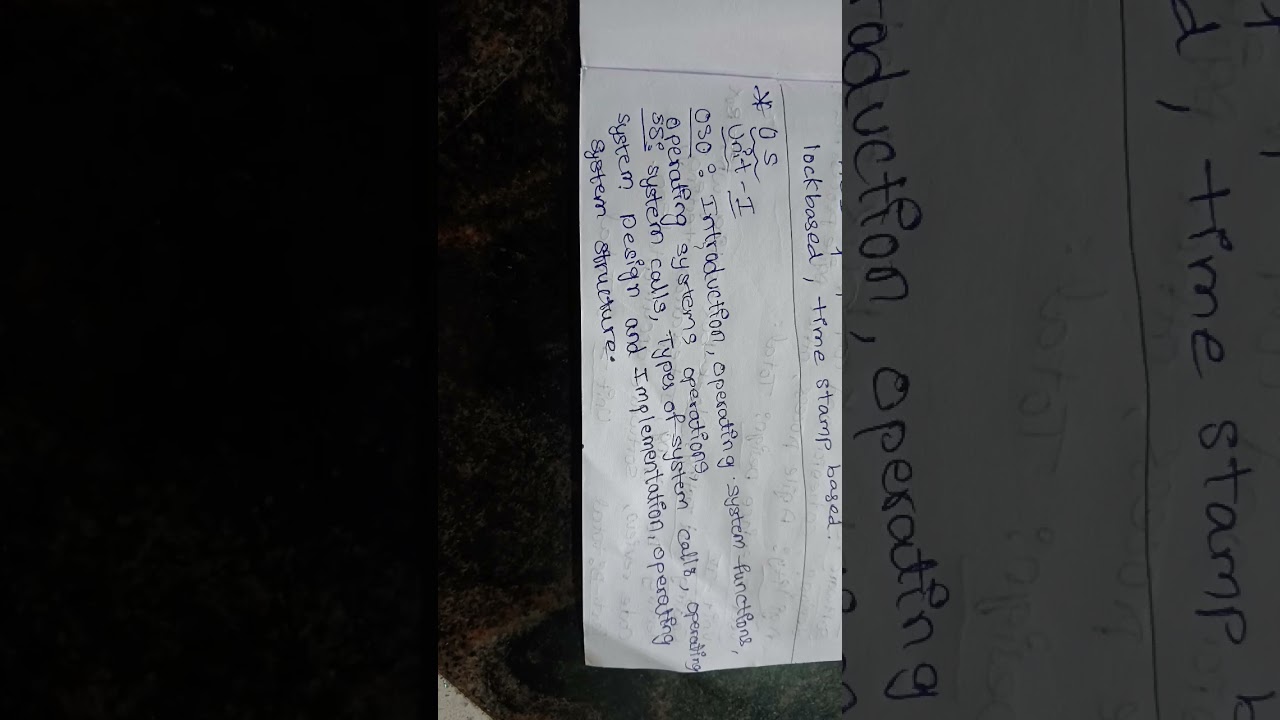 lockbased, time stamp based.
* OS
Unit - I
OSO : Introduction, operating system functions,
operating systems operations,
SS: system calls, Types of system calls, operating
system Design and Implementation, operating
system structure.
roduction, operating
d, time stamp b